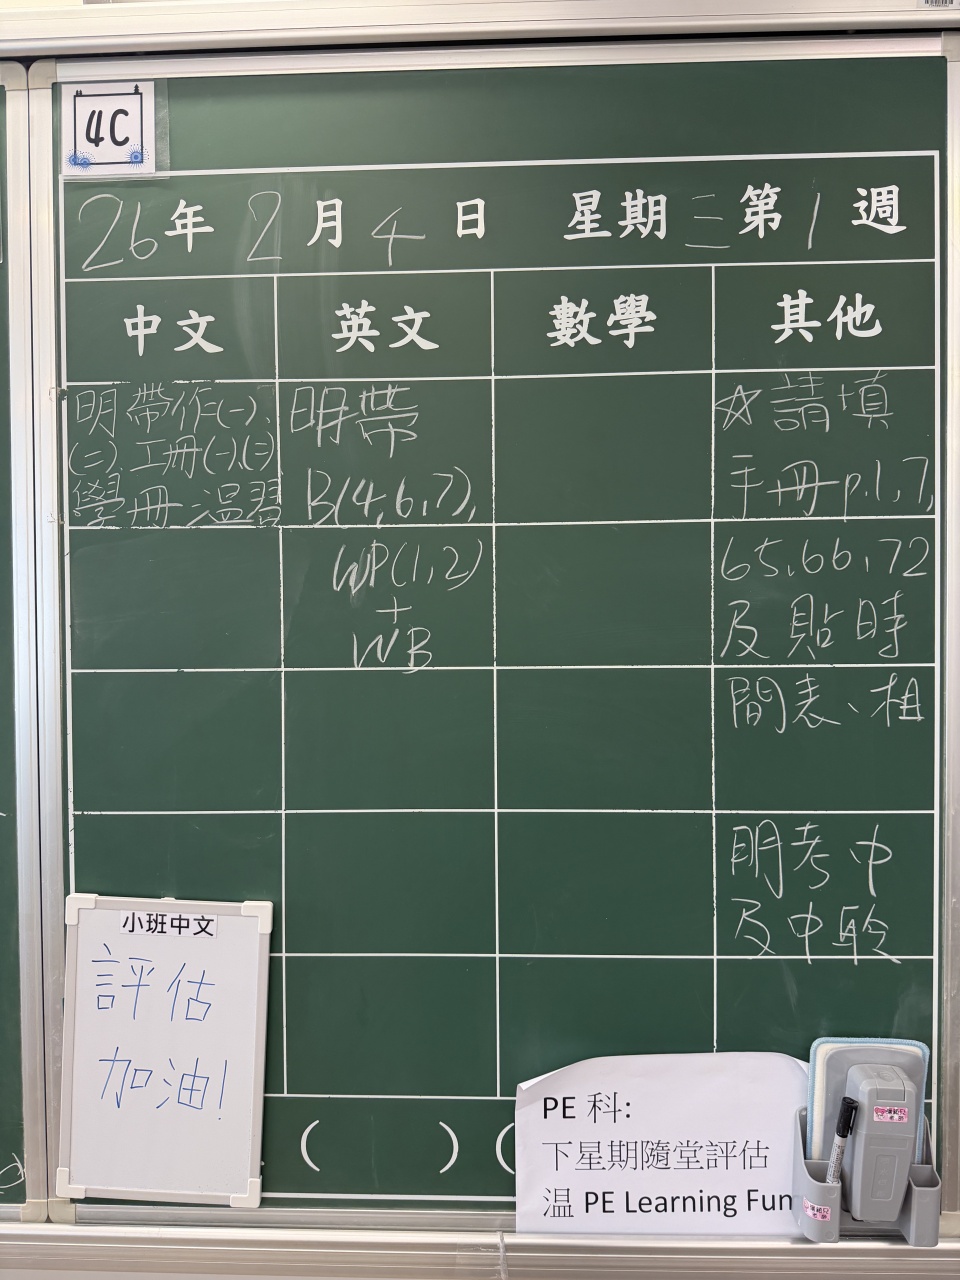 4C
26年 2月 4日 星期三 第1週
中文 英文 數學 其他
明帶作(一)、
(二)、工冊(一)、(二)
學冊 溫習
明帶
B(4,6,7),
WP(1,2)
+
WB
☆請填
手冊p.1,7,
65,66,72
及貼時
間表、相
明考中
及中聆
小班中文
評估
加油!
( ) (
PE 科:
下星期隨堂評估
溫 PE Learning Fun